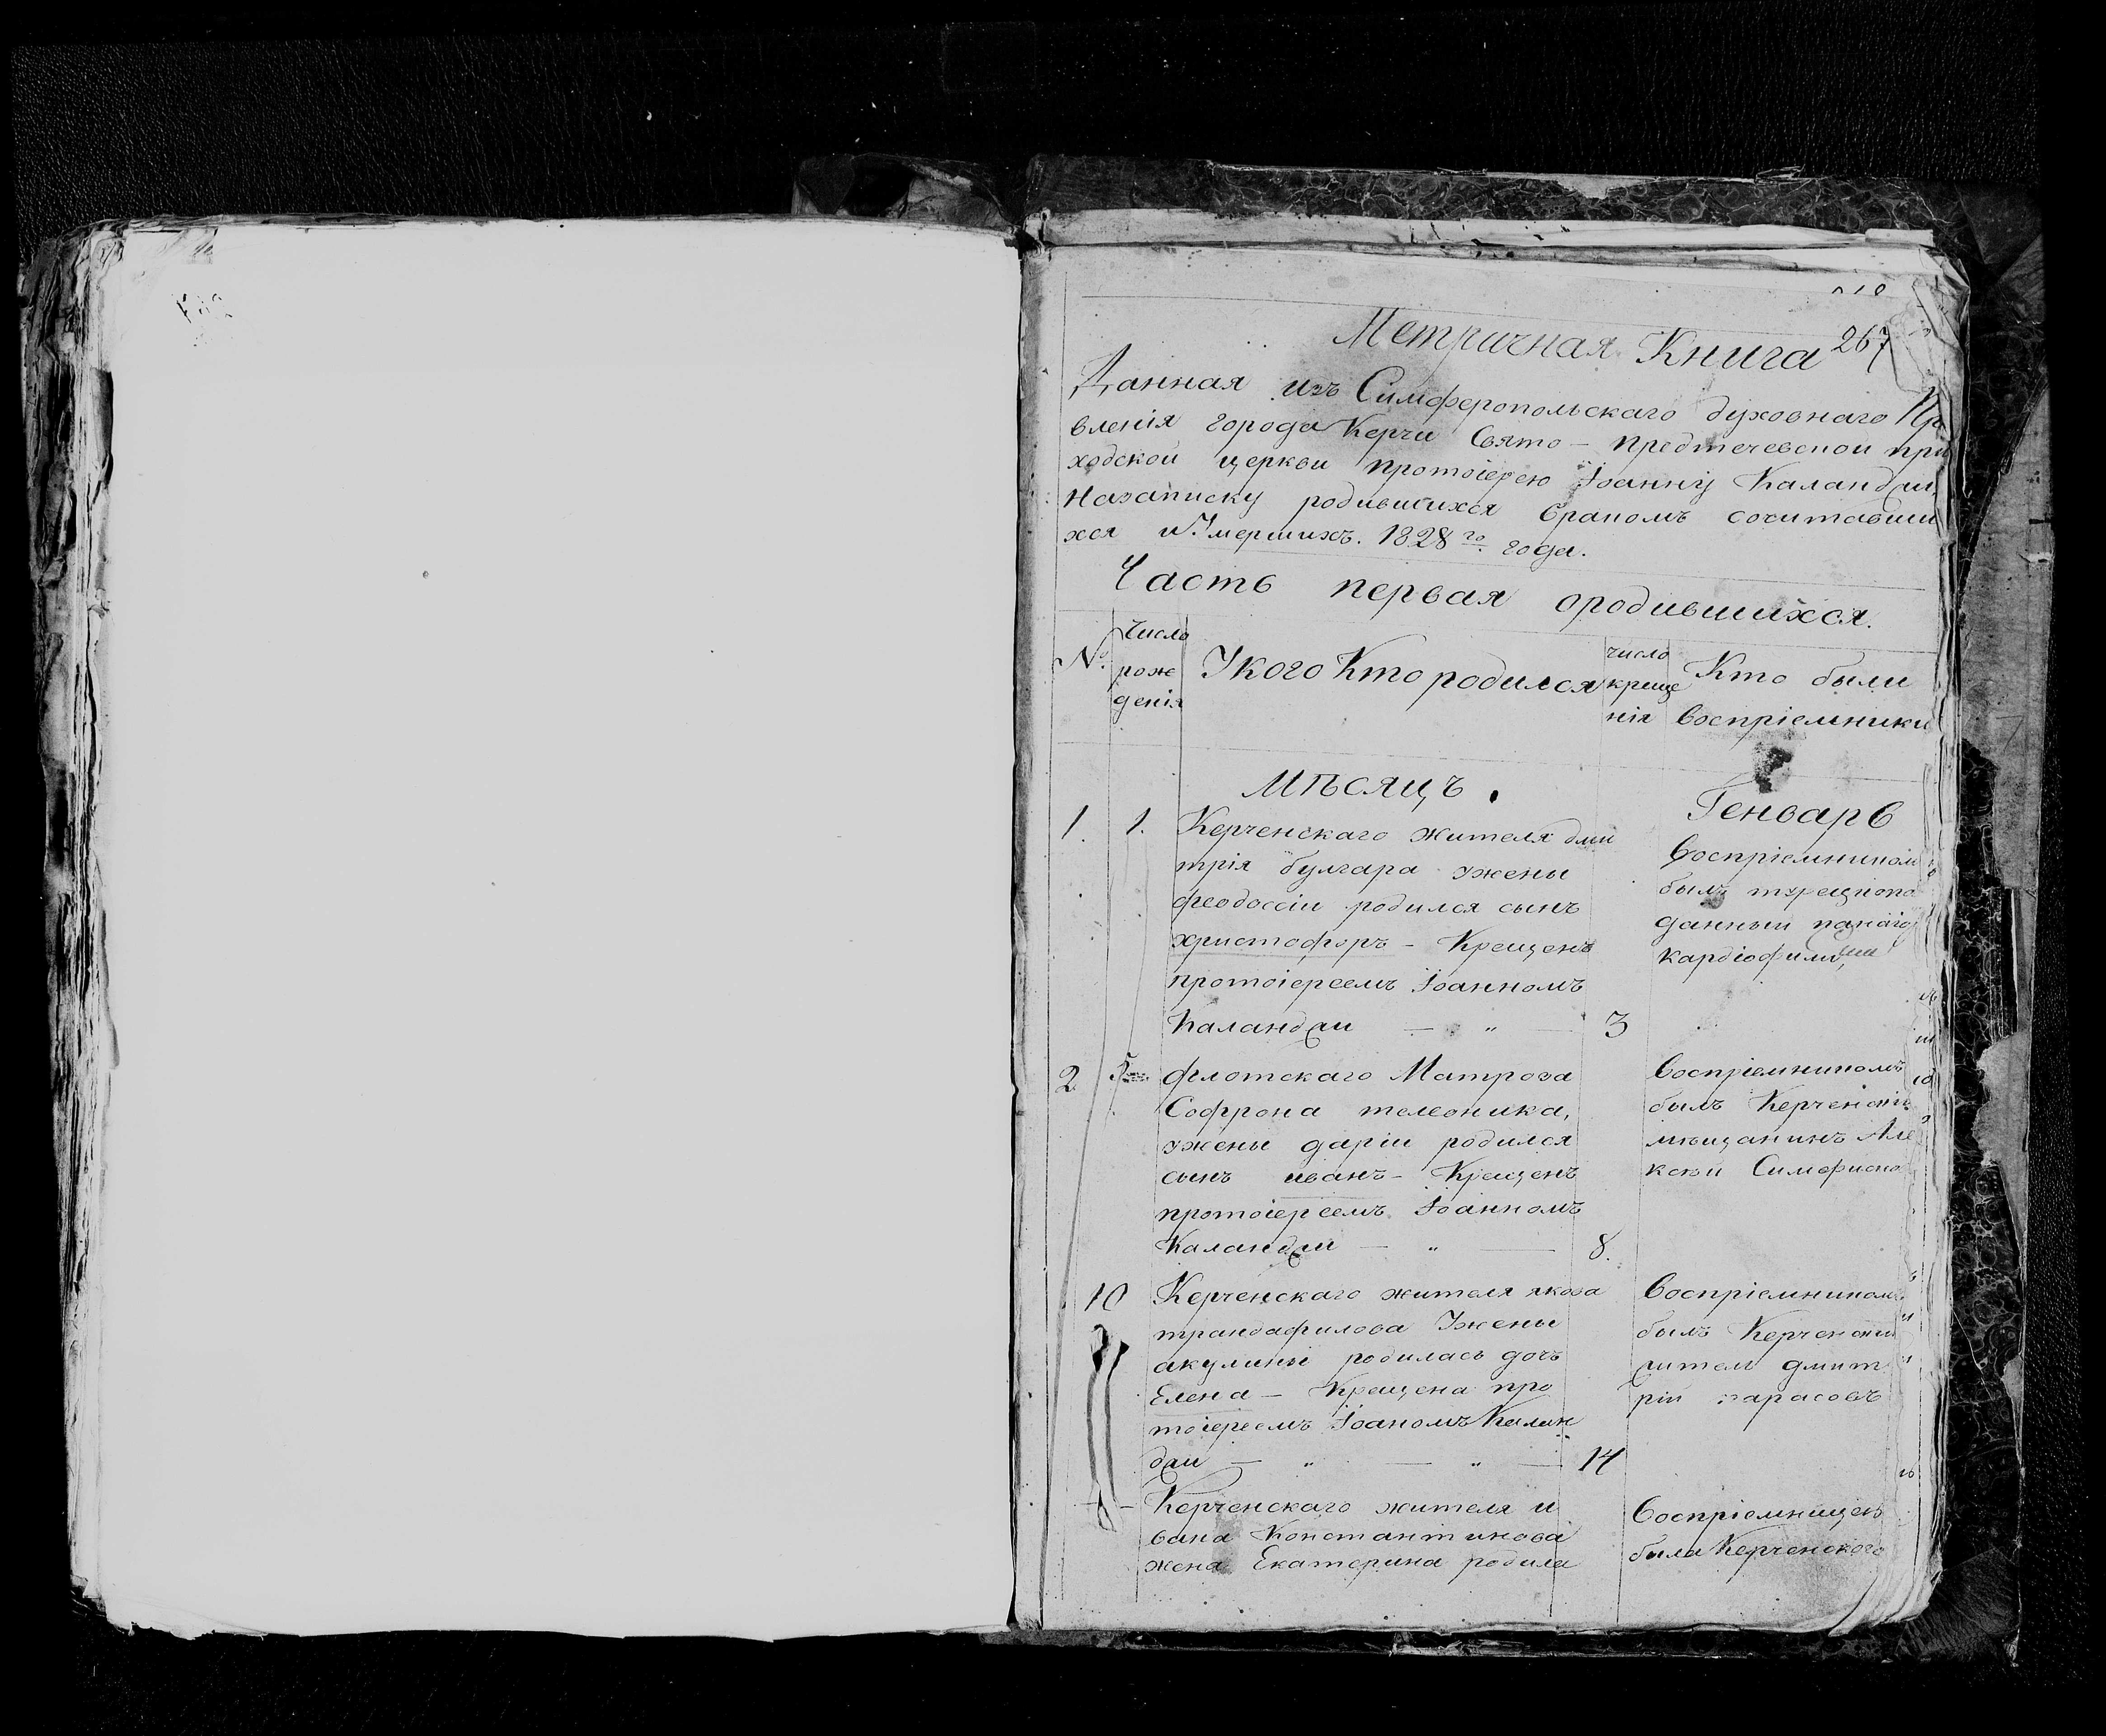 267
Метричная Книга
Данная изъ Симферопольскаго духовнаго Пра
вленія города Керчи Свято - предтечевской при
ходской церкви протоіерею Іоанну Каландаи,
Назаписку родившихся бракомъ сочитавши
хся и Умершихъ. 1828го года.
Часть первая ородившихся.
№. Число рож денія Укого Кто родился число креще нія Кто были воспріемники
мѣсяцъ. Генварь
1. 1. Керченскаго жителя дми
трія булгара ужены
феодоссіи родился сынъ
христофоръ - Крещенъ
протоіереемъ Іоанномъ
Каландаи — „ — 3
воспріемником
былъ турецкопо
данный панаго
кардіофили
2 5 флотскаго Матроза
Софрона телесника,
ужены даріи родился
сынъ иванъ - Крещенъ
протоіереемъ Іоанномъ
Каландаи — „ — 8.
Воспріемникомъ
былъ Керченскій
мѣщанинъ Але
ксѣи
10 Керченскаго жителя якова
трандафилова Ужены
акулины родилась дочь
Елена - Крещена про
тоіереемъ Іоаномъ Калан
даи — „ — „ — 14
Воспріемником
былъ Керченскии
житель дмит
ріи тарасовъ
Керченскаго жителя и
вана Константинова
жена Екатерина родила
Воспріемницею
была Керченского